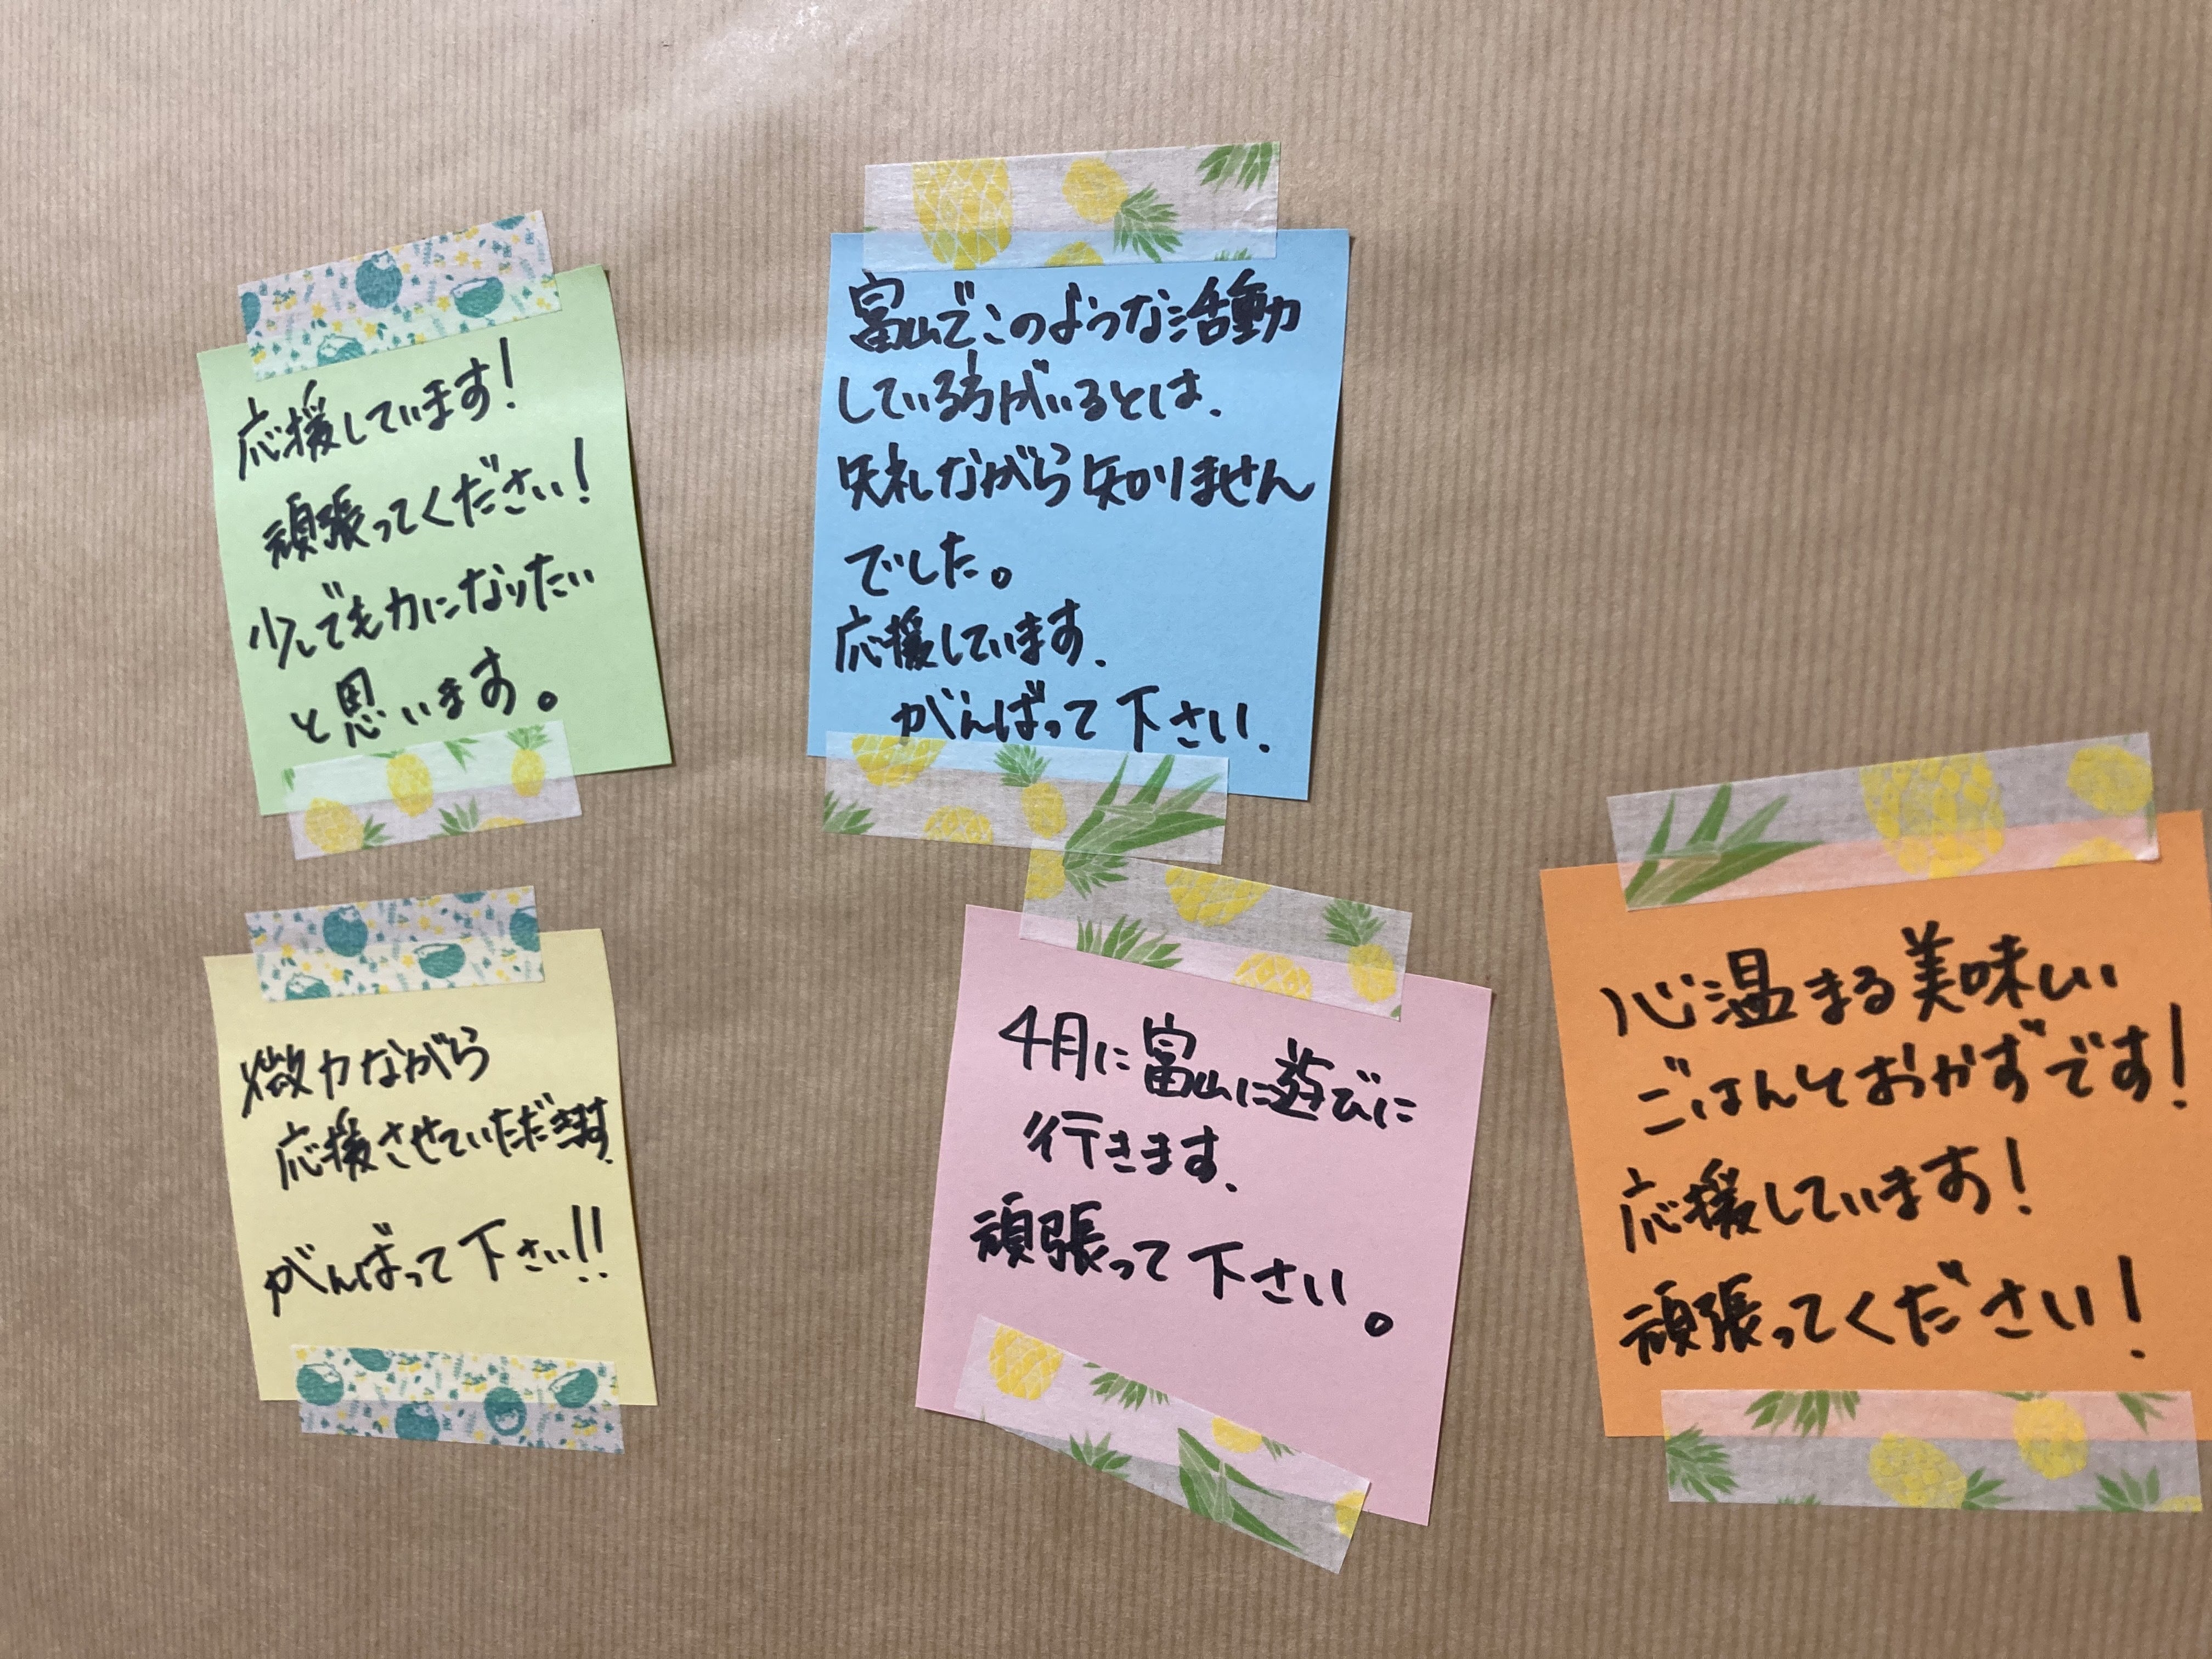 応援しています！
頑張ってください！
少しでも力になりたい
と思います。
富山でこのような活動
している方がいるとは、
失礼ながら知りません
でした。
応援しています、
がんばって下さい、
微力ながら
応援させていただきます、
がんばって下さい!!
4月に富山に遊びに
行きます、
頑張って下さい。
心温まる美味しい
ごはんとおかずです！
応援しています！
頑張ってください！